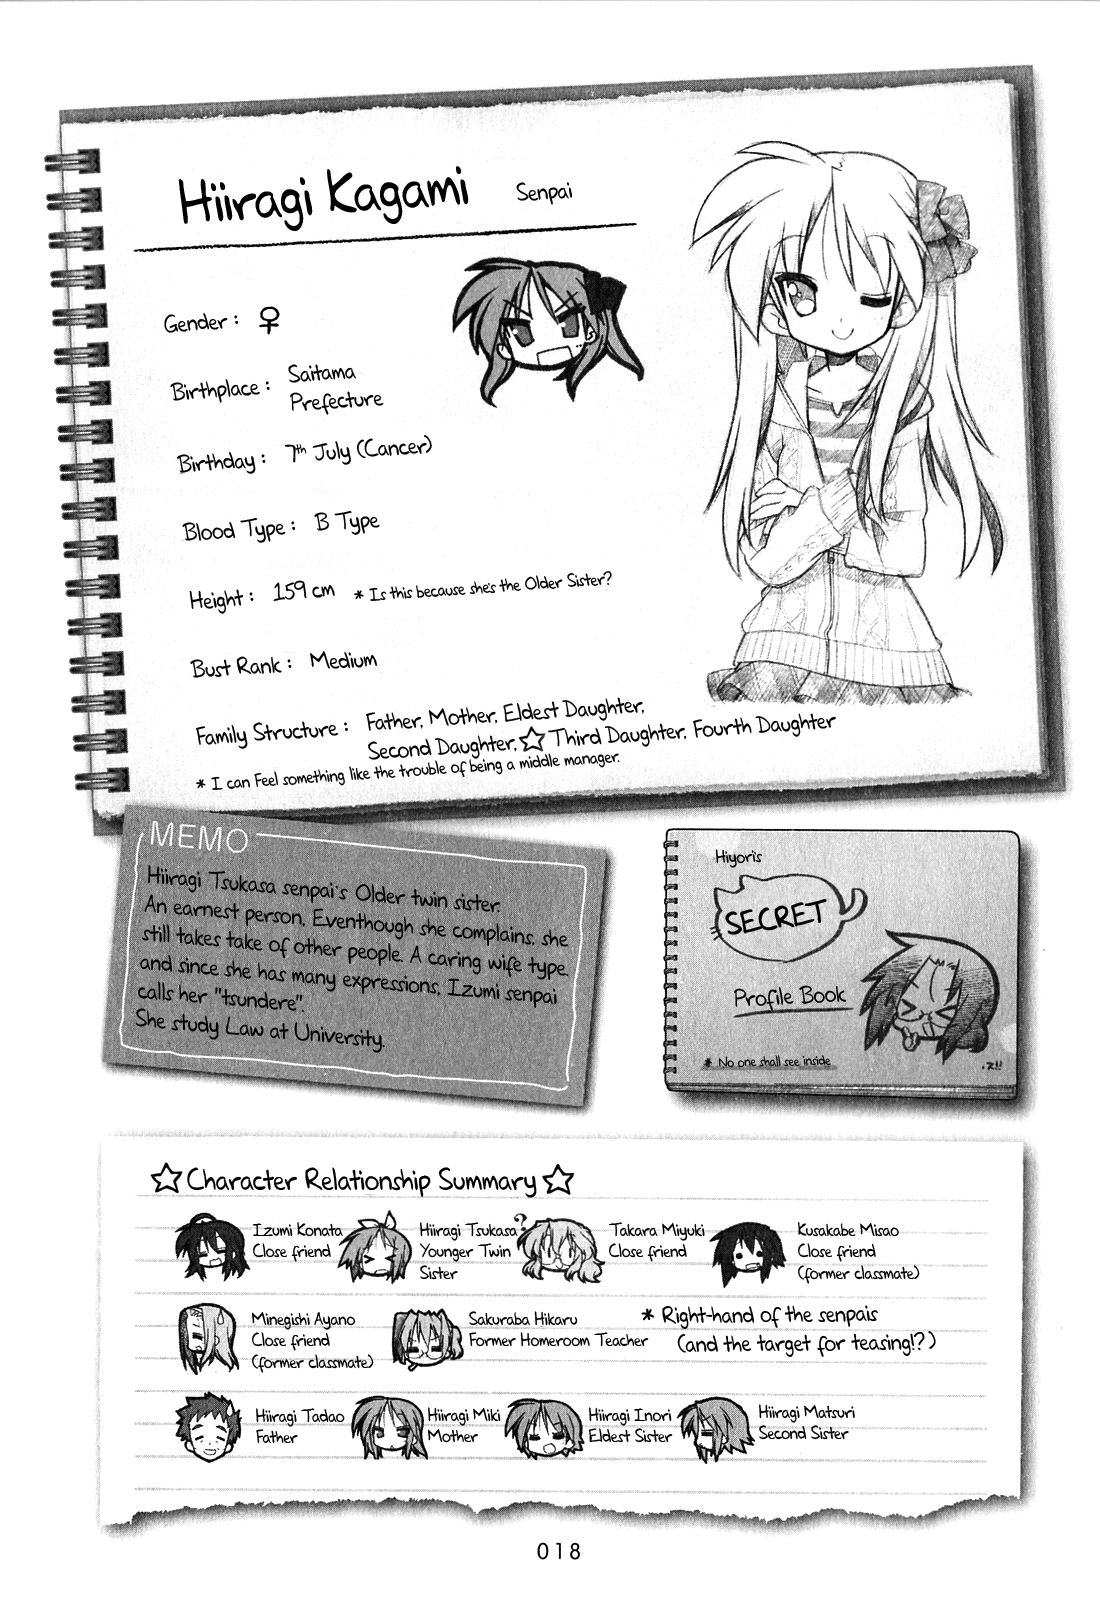 Hiiragi Kagami Senpai
Gender : ♀
Birthplace : Saitama
Prefecture
Birthday : 7th July (Cancer)
Blood Type : B Type
Height : 159 cm * Is this because she's the Older Sister?
Bust Rank : Medium
Family Structure : Father, Mother, Eldest Daughter,
Second Daughter, ☆ Third Daughter, Fourth Daughter
* I can Feel something like the trouble of being a middle manager.
MEMO
Hiiragi Tsukasa senpai's Older twin sister.
An earnest person, Eventhough she complains, she
still takes take of other people. A caring wife type.
and since she has many expressions, Izumi senpai
calls her "tsundere".
She study Law at University.
Hiyori's
SECRET
Profile Book
* No one shall see inside
☆ Character Relationship Summary ☆
Izumi Konata
Close friend
Hiiragi Tsukasa
Younger Twin
Sister
?
Takara Miyuki
Close friend
Kusakabe Misao
Close friend
(former classmate)
Minegishi Ayano
Close friend
(former classmate)
Sakuraba Hikaru
Former Homeroom Teacher
* Right-hand of the senpais
(and the target for teasing!?)
Hiiragi Tadao
Father
Hiiragi Miki
Mother
Hiiragi Inori
Eldest Sister
Hiiragi Matsuri
Second Sister
018